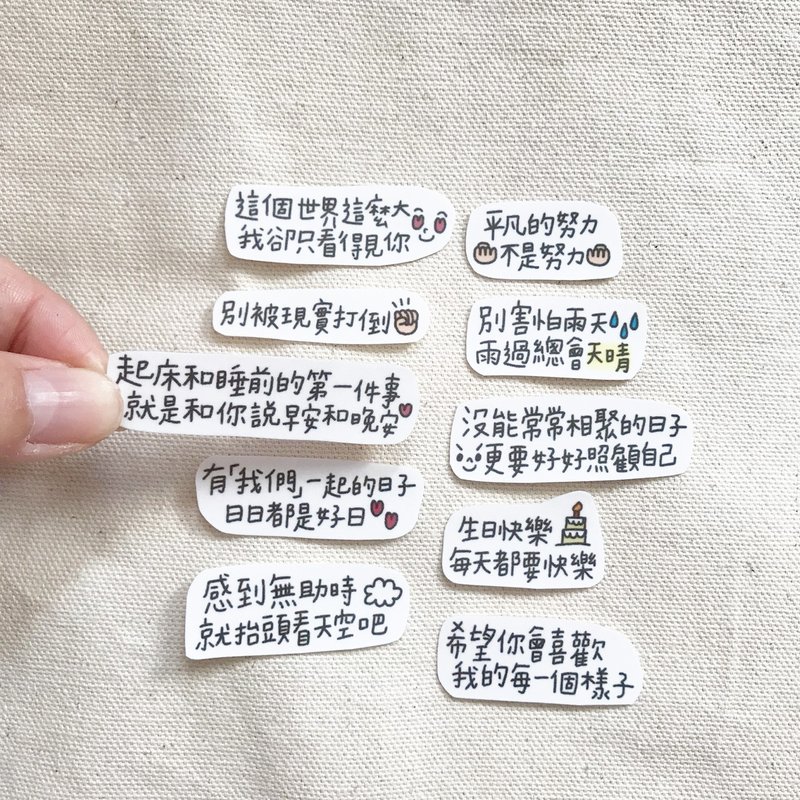 這個世界這麼大
我卻只看得見你
別被現實打倒
起床和睡前的第一件事
就是和你說早安和晚安
有「我們」一起的日子
日日都是好日
感到無助時
就抬頭看天空吧
平凡的努力
不是努力
別害怕雨天
雨過總會天晴
沒能常常相聚的日子
更要好好照顧自己
生日快樂
每天都要快樂
希望你會喜歡
我的每一個樣子